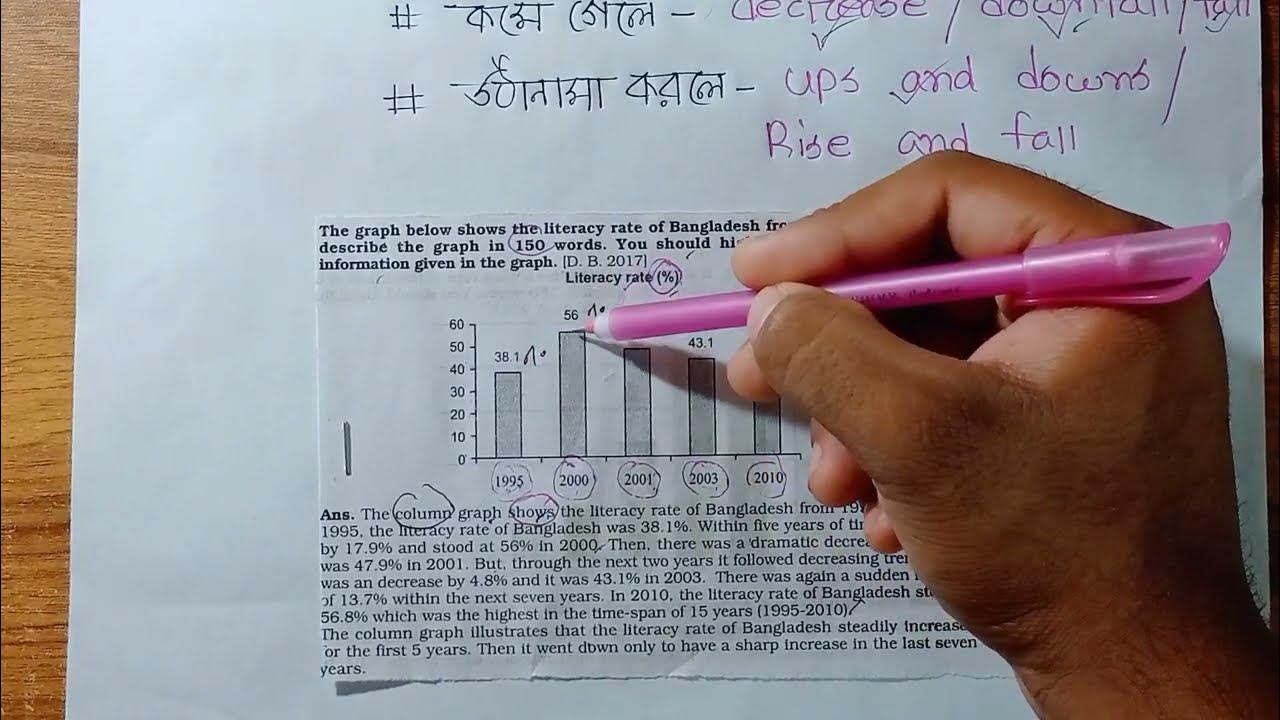 # কমে গেলে - decrease / downfall / fall
# উঠানামা করলে - ups and downs /
Rise and fall
The graph below shows the literacy rate of Bangladesh
describe the graph in 150 words. You should
information given in the graph. [D. B. 2017]
Literacy rate (%)
56
60
50
43.1
38.1
40
30
20
10
0
1995 2000 2001 2003 2010
Ans. The column graph shows the literacy rate of Bangladesh from
1995, the literacy rate of Bangladesh was 38.1%. Within five years of
by 17.9% and stood at 56% in 2000. Then, there was a dramatic
was 47.9% in 2001. But, through the next two years it followed decreasing
was an decrease by 4.8% and it was 43.1% in 2003. There was again a sudden
of 13.7% within the next seven years. In 2010, the literacy rate of Bangladesh
56.8% which was the highest in the time-span of 15 years (1995-2010)
The column graph illustrates that the literacy rate of Bangladesh steadily
or the first 5 years. Then it went down only to have a sharp increase in the last seven
years.